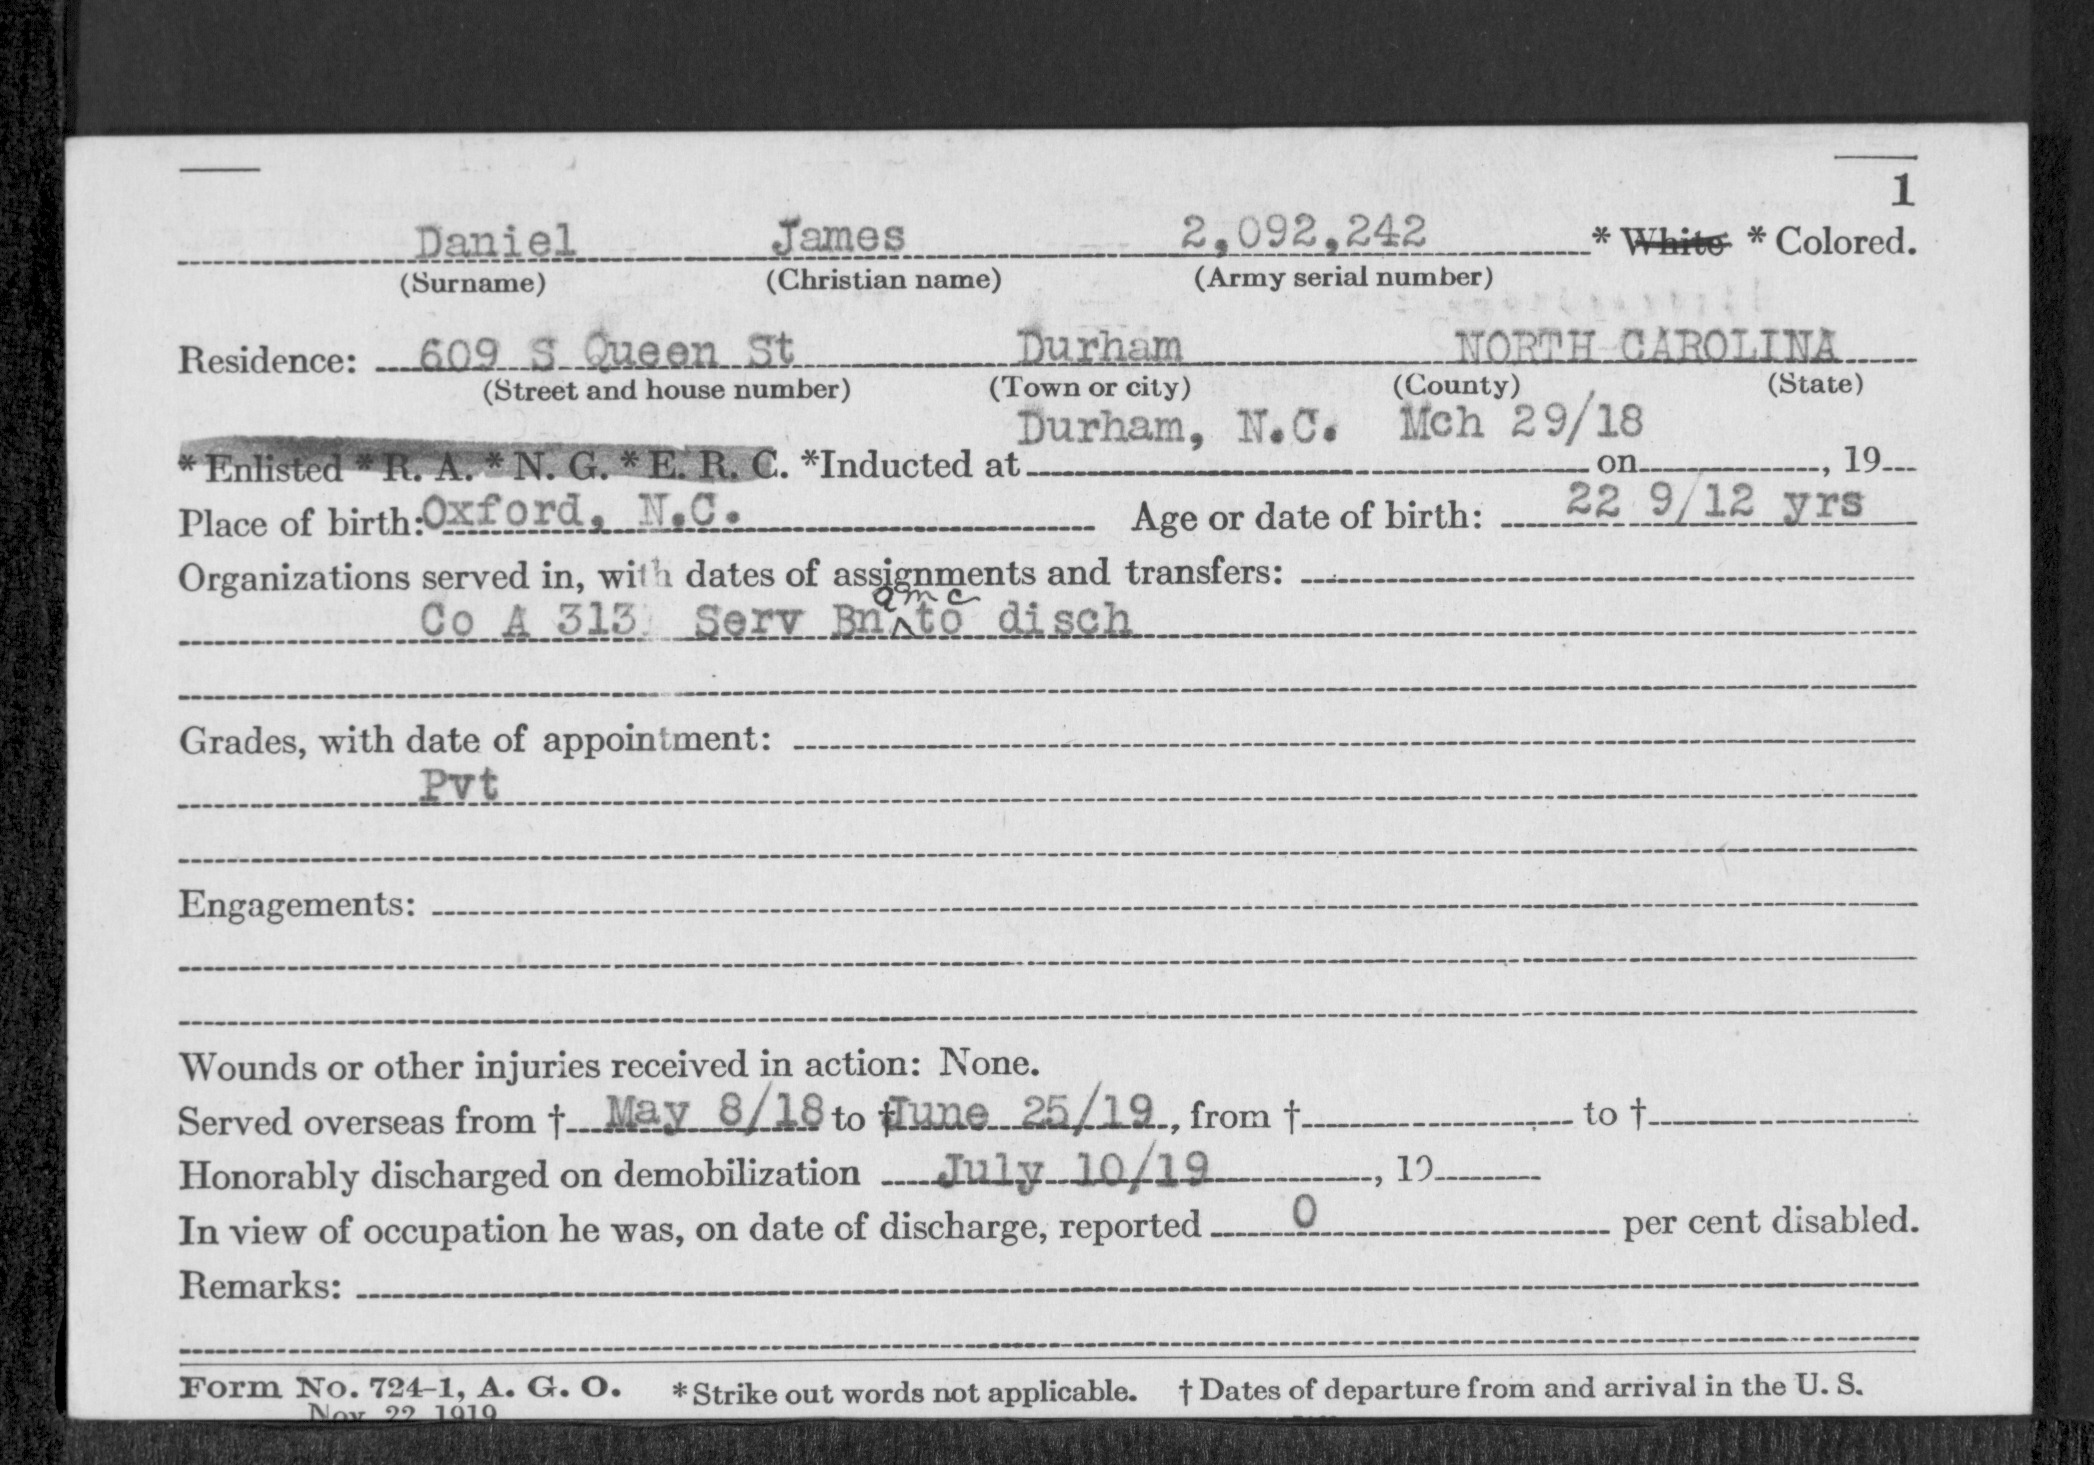 1
Daniel James 2,092,242 * White * Colored.
(Surname) (Christian name) (Army serial number)
Residence: 609 S Queen St Durham NORTH CAROLINA
(Street and house number) (Town or city) (County) (State)
Durham, N.C. Mch 29/18
* Enlisted * R. A. * N. G. * E. R. C. *Inducted at on , 19
Place of birth: Oxford, N.C. Age or date of birth: 22 9/12 yrs
Organizations served in, with dates of assignments and transfers:
qmc
Co A 313 Serv Bn ^ to disch
Grades, with date of appointment:
Pvt
Engagements:
Wounds or other injuries received in action: None.
Served overseas from † May 8/18 to † June 25/19, from † to †
Honorably discharged on demobilization July 10/19, 19
In view of occupation he was, on date of discharge, reported 0 per cent disabled.
Remarks:
Form No. 724-1, A. G. O. * Strike out words not applicable. † Dates of departure from and arrival in the U. S.
Nov. 22, 1919